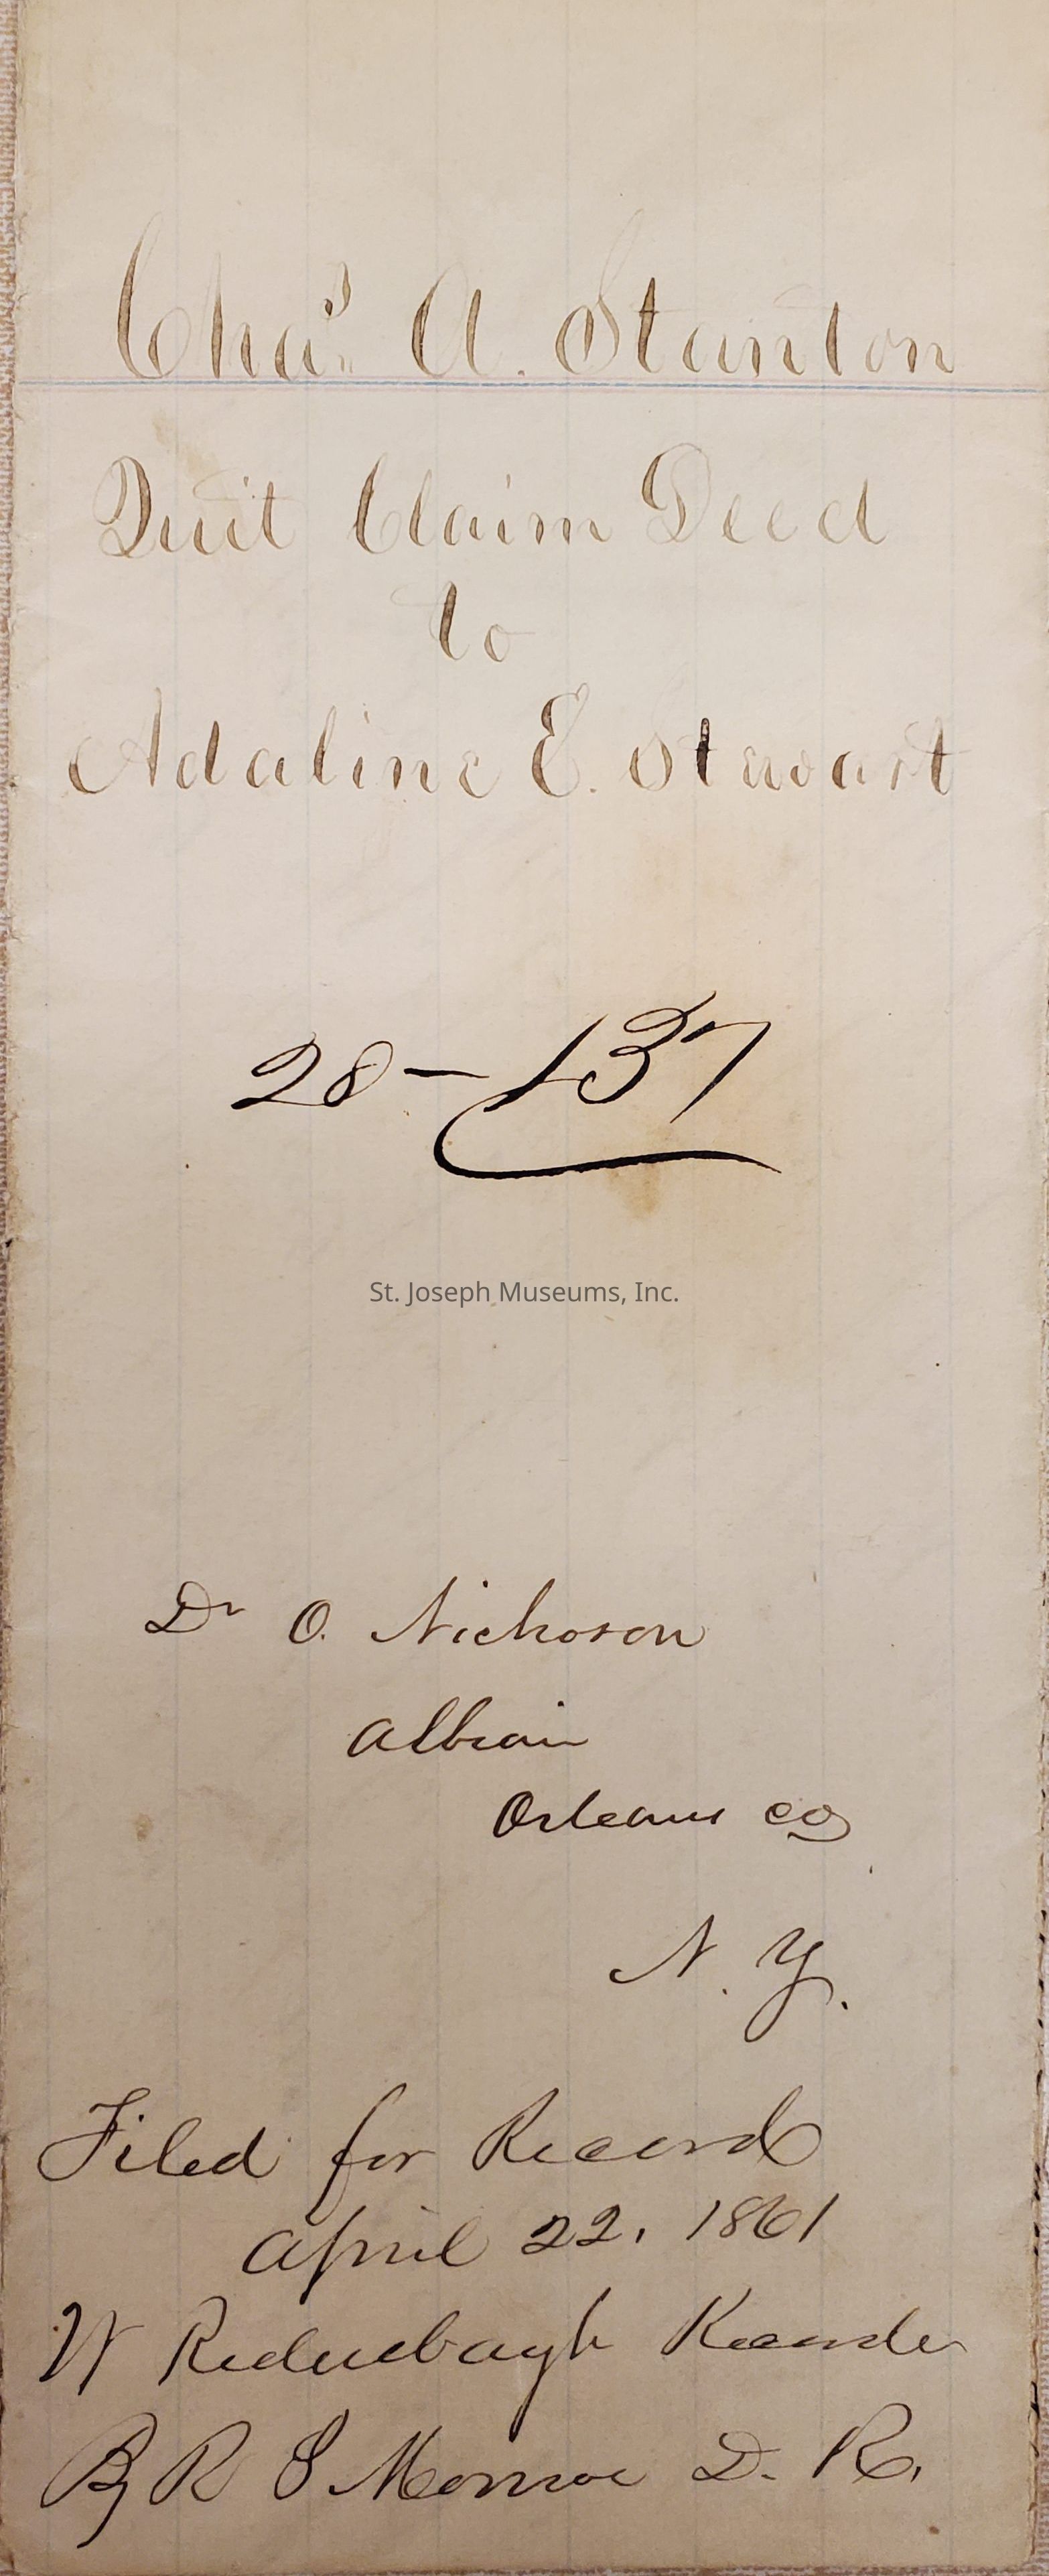 Chas. A. Stanton
Quit Claim Deed
to
Adaline E. Stewart
28-137
St. Joseph Museums, Inc.
Dr O. Nichoson
Albion
Orleans co
N. Y.
Filed for Record
April 22, 1861
W Ridenbaugh Recorder
By R S Monroe D. R.